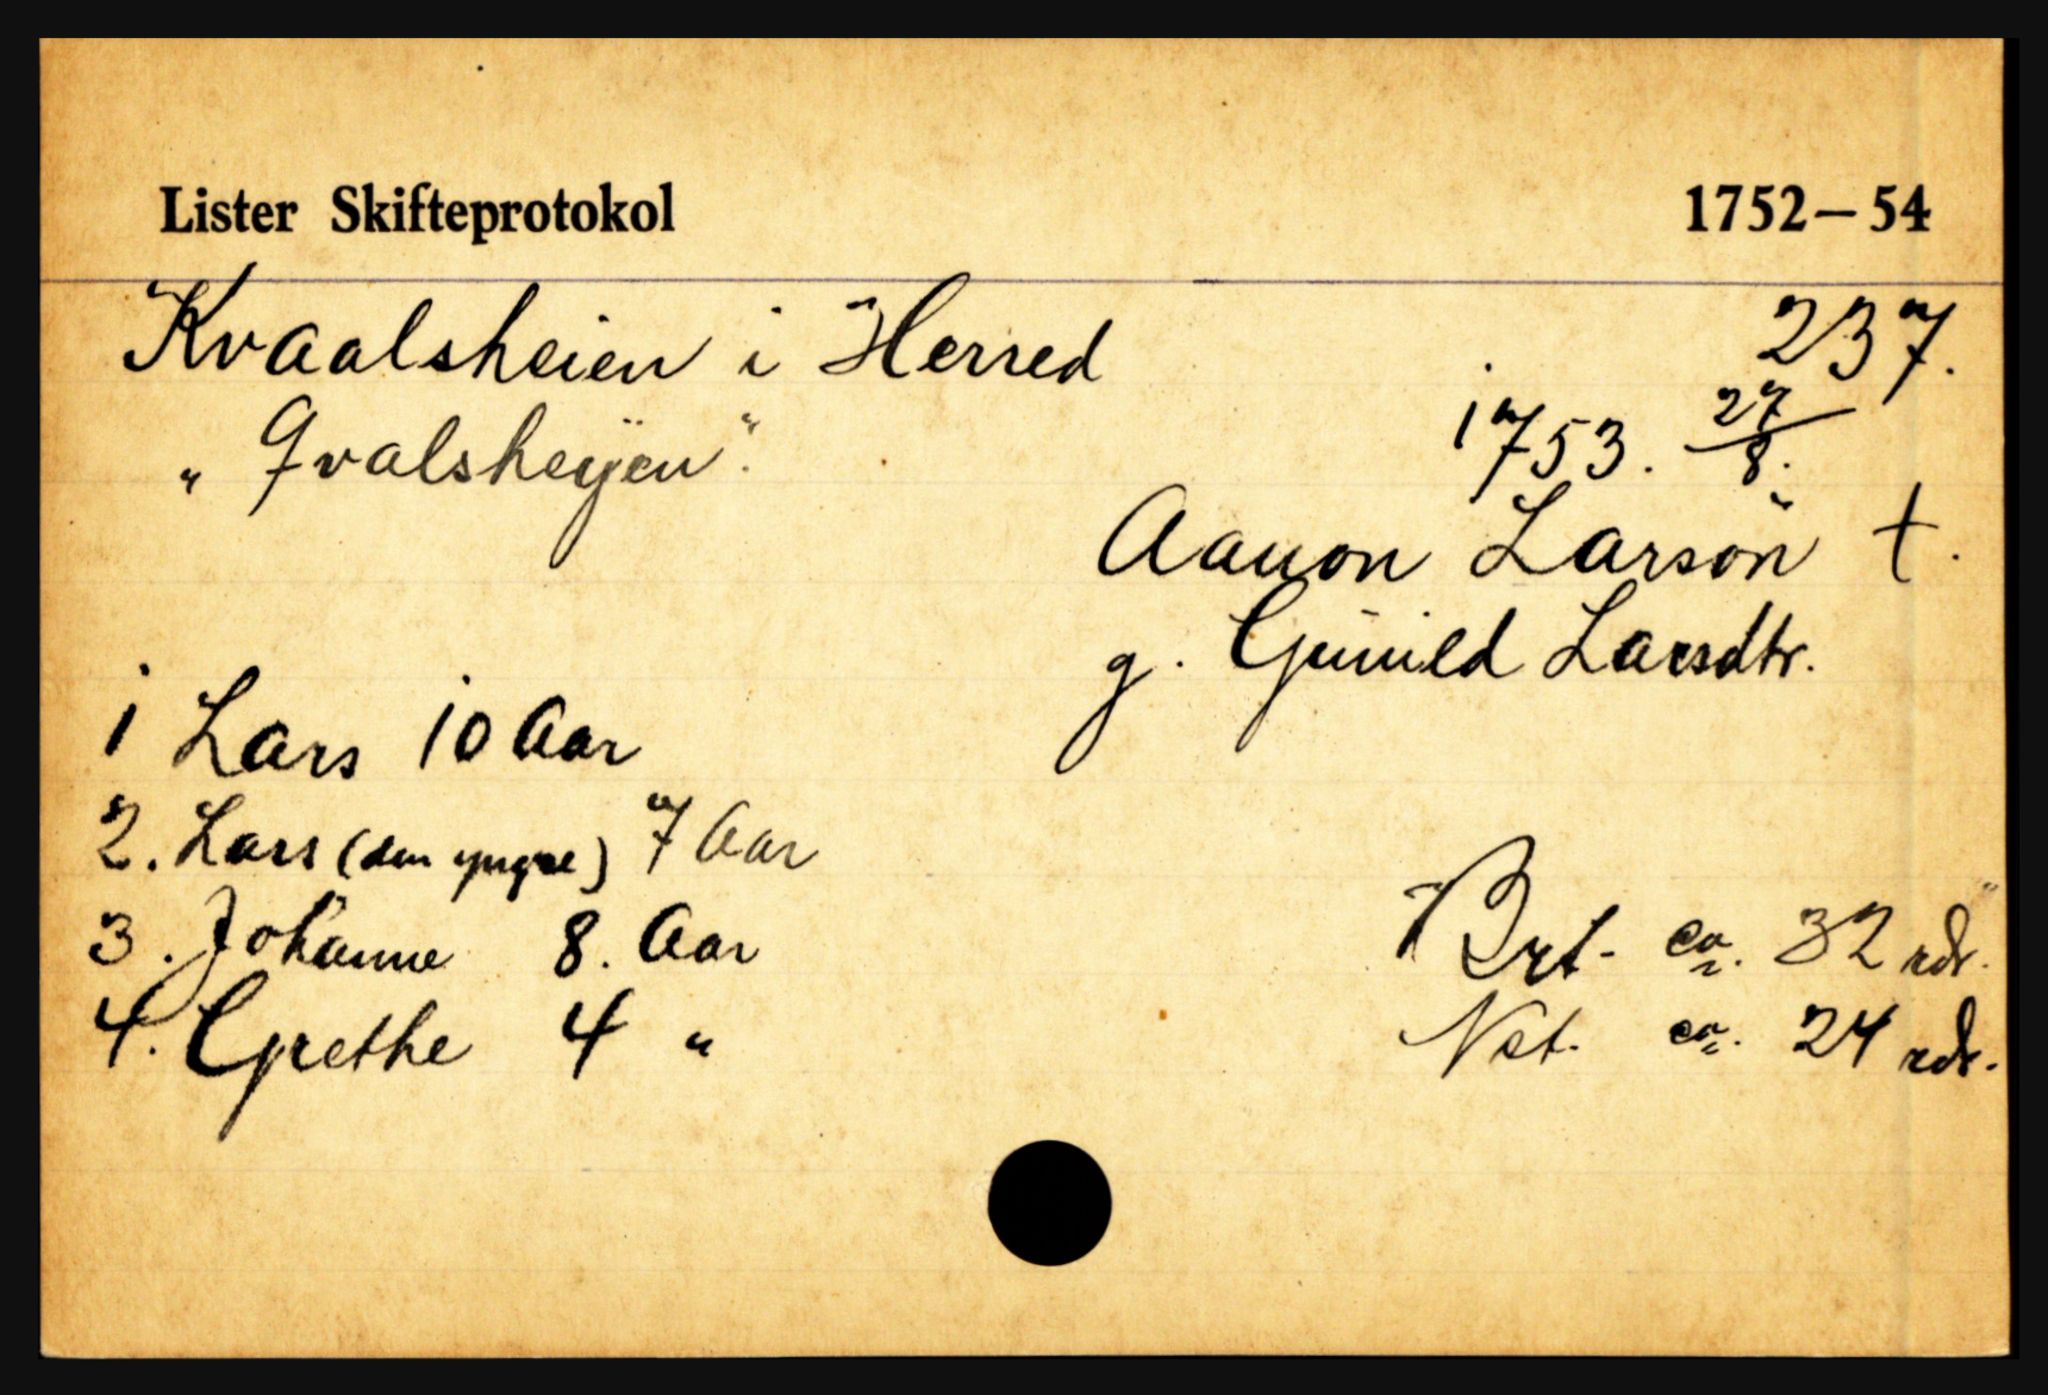 Lister Skifteprotokol 1752–54
Kvaalsheien i Herred 237.
„Qvalsheÿen“.
1753. 27/8.
Aanon Larsøn †.
g. Gunild Larsdtr.
1 Lars 10 Aar
2. Lars (den yngre) 7 Aar
3. Johanne 8. Aar
4. Grethe 4 "
Brt. ca. 32 rdr.
Net. ca. 24 rdr.